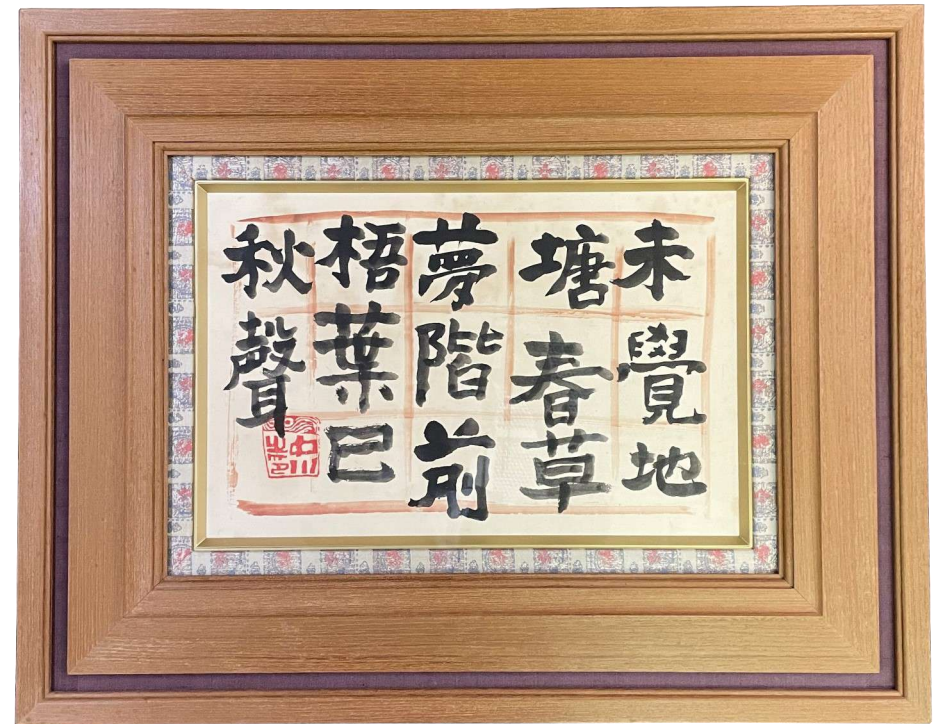 未覺地
塘春草
夢階前
梧葉已
秋聲